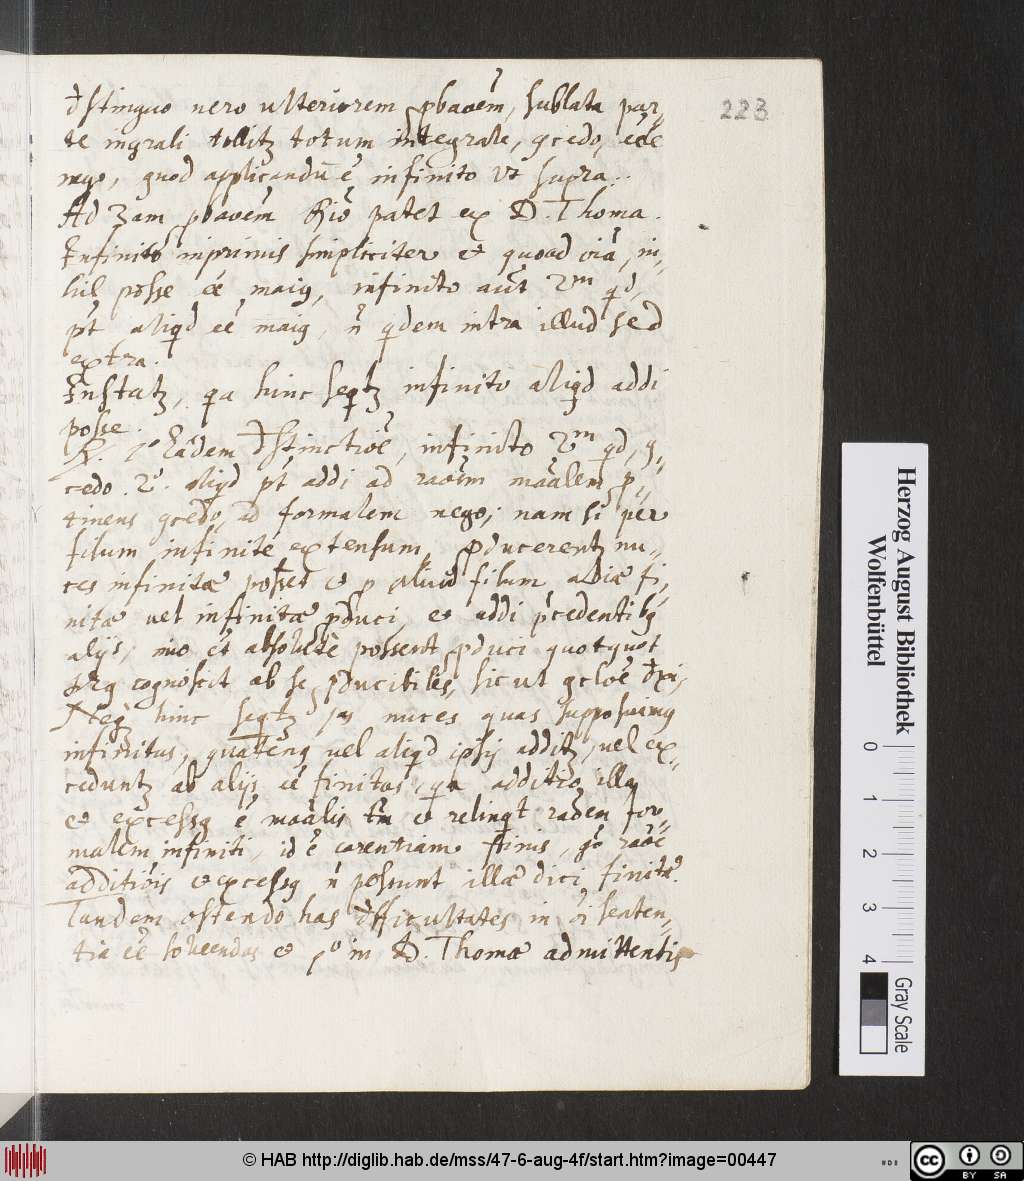 223
distinguo vero ulteriorem pbaoem, sublata par-
te ingrali tollitz totum integrale, gcedo, eode
nego, quod applicandū ē infinito ut supra.
Ad 3am pbaoem Rio patet ex D. Thoma.
Infinito inprimis simpliciter et quoad oia, ni-
hil posse ee maig, infinito aūt 2m qd,
pt aliqd eē maig, n qdem intra illud sed
extra.
Instatz, qa hinc seqtz infinito aliqd addi
posse.
R. 1o Eadem distinctioē, infinito 2m qd, g-
cedo. 2o. aliqd pt addi ad raoem maalem p-
tinens gcedo, ad formalem nego; nam si per
filum infinite extensum, pducerentz nu-
ces infinitæ posset et p aliud filum aliæ fi-
nitæ vel infinitæ pduci et addi pcedentibg
alijs, imo et absolute possent pduci quotquot
Deg cognoscit ab se pducibiles, sicut gcloe dxi,
Negz hinc seqtz jas nuces quas supposuimg
infinitas, quateng vel aliqd ipsis additz, vel ex-
ceduntz ab alijs eē finitas, qa additio illa
et excessg ē maalis tm et relinqt raoem for-
malem infiniti, id ē carentiam finis, go raoe
additiois et excessg n possunt illæ dici finitæ.
Tandem ostendo has difficultates in oi senten-
tia eē solvendas et po in D. Thomæ admittentis
Herzog August Bibliothek
Wolfenbüttel
0 1 2 3 4
Gray Scale
© HAB http://diglib.hab.de/mss/47-6-aug-4f/start.htm?image=00447
cc BY SA